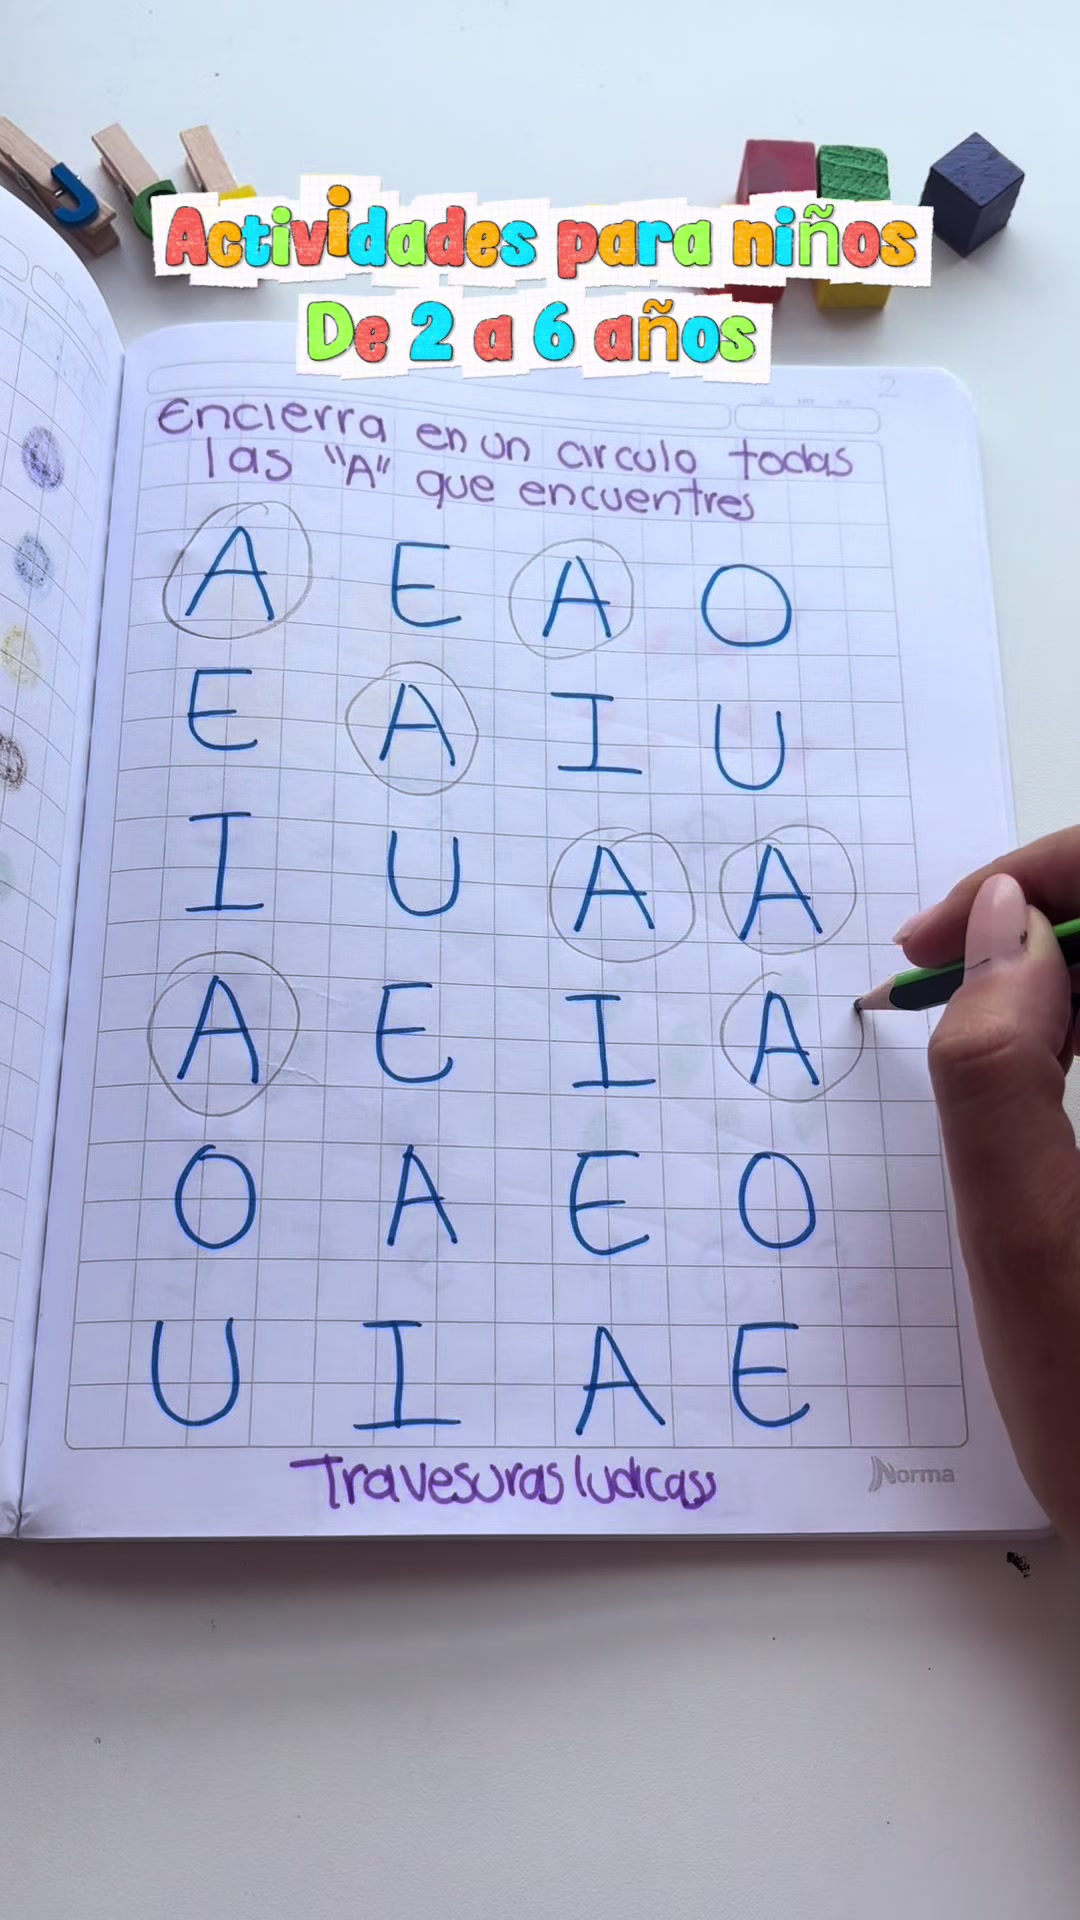 Actividades para niños
De 2 a 6 años
2
Encierra en un circulo todas
las "A" que encuentres
A E A O
E A I U
I U A A
A E I A
O A E O
U I A E
Travesuras ludicas
Norma